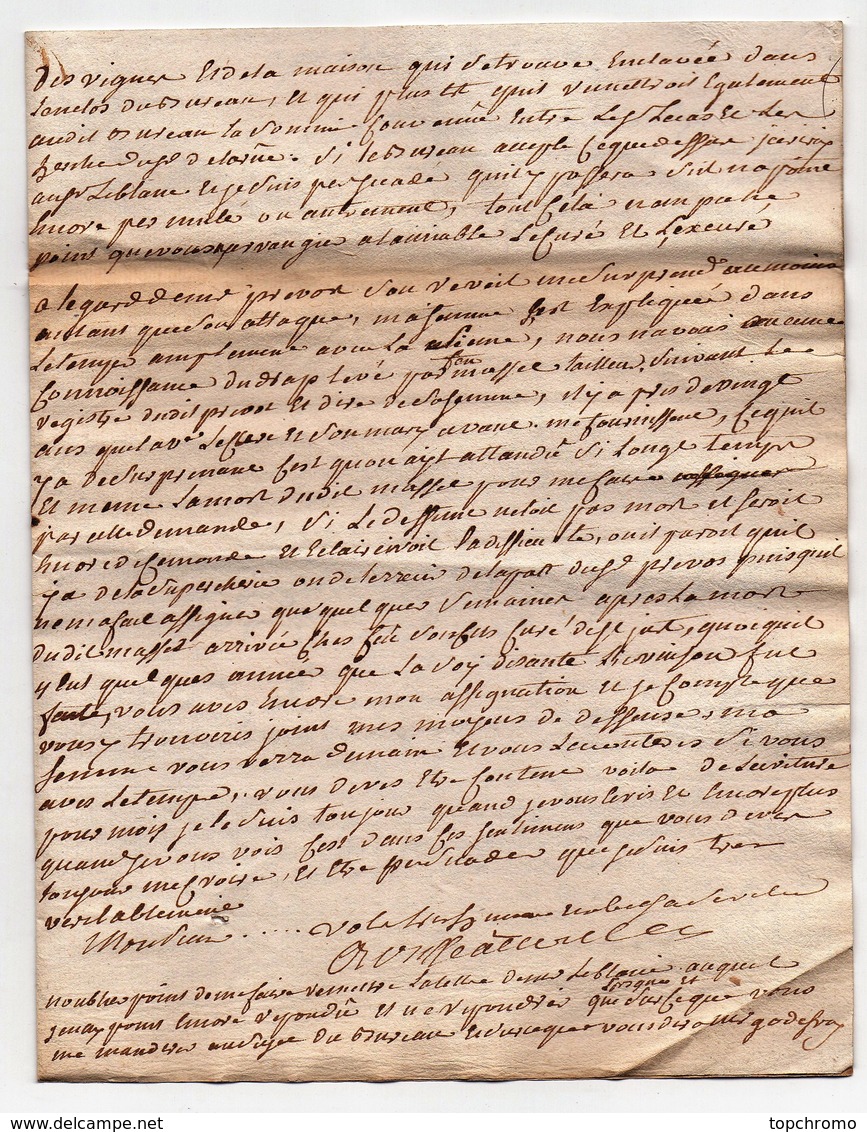 des vignes et de la maison qui se trouve enclavée dans
lenclos du bureau, et qui plus est quil remettroit egalement
audit bureau la somme convenûe entre les Srs Lucas et Les
au Sr Leblanc et je suis persuadé quil y passera sil na point
encore permuté ou autrement, tout cela nempeche
point que vous arrangié a laimiable le curé et
a legard de mr prevost son reveil me surprend au moins
autant que son attaque, ma femme sest expliquée dans
le temps amplement avec la sienne, nous navons aucune
connoissance du drap levé par son massé tailleur, suivant le
registre dudit prevost et dire de sa femme, il y a pres de vingt
ans que la ve Leclerc et son mary avant me fournissent, ce quil
y a de surprenant cest quon ayt attandû si longt temps
et meme la mort dudit massé pour me faire assigner
par elle demande, si le deffunt netoit pas mort et seroit
encore de ce monde et eclairciroit la difficulté, ou il paroit quil
y a de la supercherie de la part du Sr prevos puisquil
ne ma fait assigner que quelques semaines apres la mort
dudit massé arrivée ches feû curé de St just, quoi quil
y eut quelques année que la soy disante livraison fut
faite, vous avés encore mon assignation et je compte que
vous y trouverés joint mes moyens de deffense, ma
femme vous verra demain et vous si vous
avés le temps, vous devés etre content voila de lecriture
pour moi, je le suis toujour quand je vous ecris et encore plus
quand je vous vois cest dans ces sentimens que vous devés
toujour me croire, et etre persuadé que je suis tres
veritablement
Monsieur ..... votre tres humble et obeissant serviteur
noubliés point de me faire remettre la lettre de mr Leblanc auquel
je nay point encore repondû et ne repondrés lorsque et que sur ce que vous
me manderés au sujet du bureau et sur ce que vous dira mr godefroy